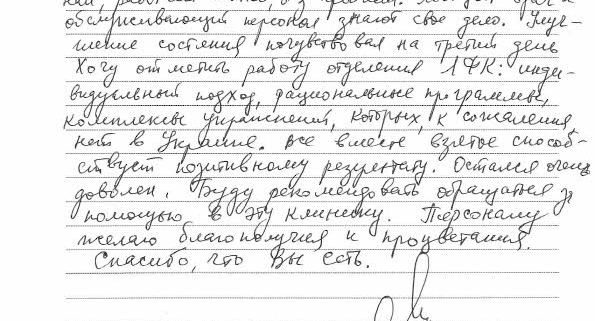 обслуживающий персонал знают свое дело. Улуч-
шение состояния почувствовал на третий день
Хочу отметить работу отделения ЛФК: инди-
видуальный подход, рациональные программы,
комплексы упражнений, которых, к сожалению
нет в Украине. Все вместе взятое способ-
ствует позитивному результату. Остался очень
доволен. Буду рекомендовать обращаться за
помощью в эту клинику. Персоналу
желаю благополучия и процветания.
Спасибо, что Вы есть.